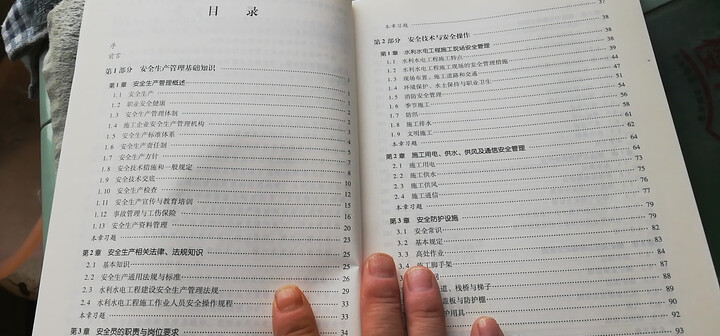 目 录
序
前言
第1部分 安全生产管理基础知识
第1章 安全生产管理概述
1.1 安全生产
1.2 职业安全健康
1.3 安全生产管理体制
1.4 施工企业安全生产管理机构
1.5 安全生产标准体系
1.6 安全生产责任制
1.7 安全生产方针
1.8 安全技术措施和一般规定
1.9 安全技术交底
1.10 安全生产检查
1.11 安全生产宣传与教育培训
1.12 事故管理与工伤保险 16
1.13 安全生产资料管理 20
本章习题 23
第2章 安全生产相关法律、法规知识 25
2.1 基本知识 25
2.2 安全生产通用法规与标准 26
2.3 水利水电工程建设安全生产管理法规 29
2.4 水利水电工程施工作业人员安全操作规程 33
本章习题 33
第3章 安全员的职责与岗位要求 34
本章习题 37
第2部分 安全技术与安全操作 38
第1章 水利水电工程施工现场安全管理 38
1.1 水利水电工程施工特点 38
1.2 水利水电工程施工现场的安全管理措施 39
1.3 现场布置、施工道路和交通 44
1.4 环境保护、水土保持与职业卫生 47
1.5 消防安全管理 51
1.6 季节施工 54
1.7 防汛 56
1.8 施工排水 58
1.9 文明施工 61
本章习题 62
第2章 施工用电、供水、供风及通信安全管理 64
2.1 施工用电 64
2.2 施工供水 73
2.3 施工供风 75
2.4 施工通信 76
本章习题 77
第3章 安全防护设施 79
3.1 安全常识 79
3.2 基本规定 82
3.3 高处作业 83
3.4 施工脚手架 84
道、栈桥与梯子 87
盖板与防护棚 90
护用具 92
93